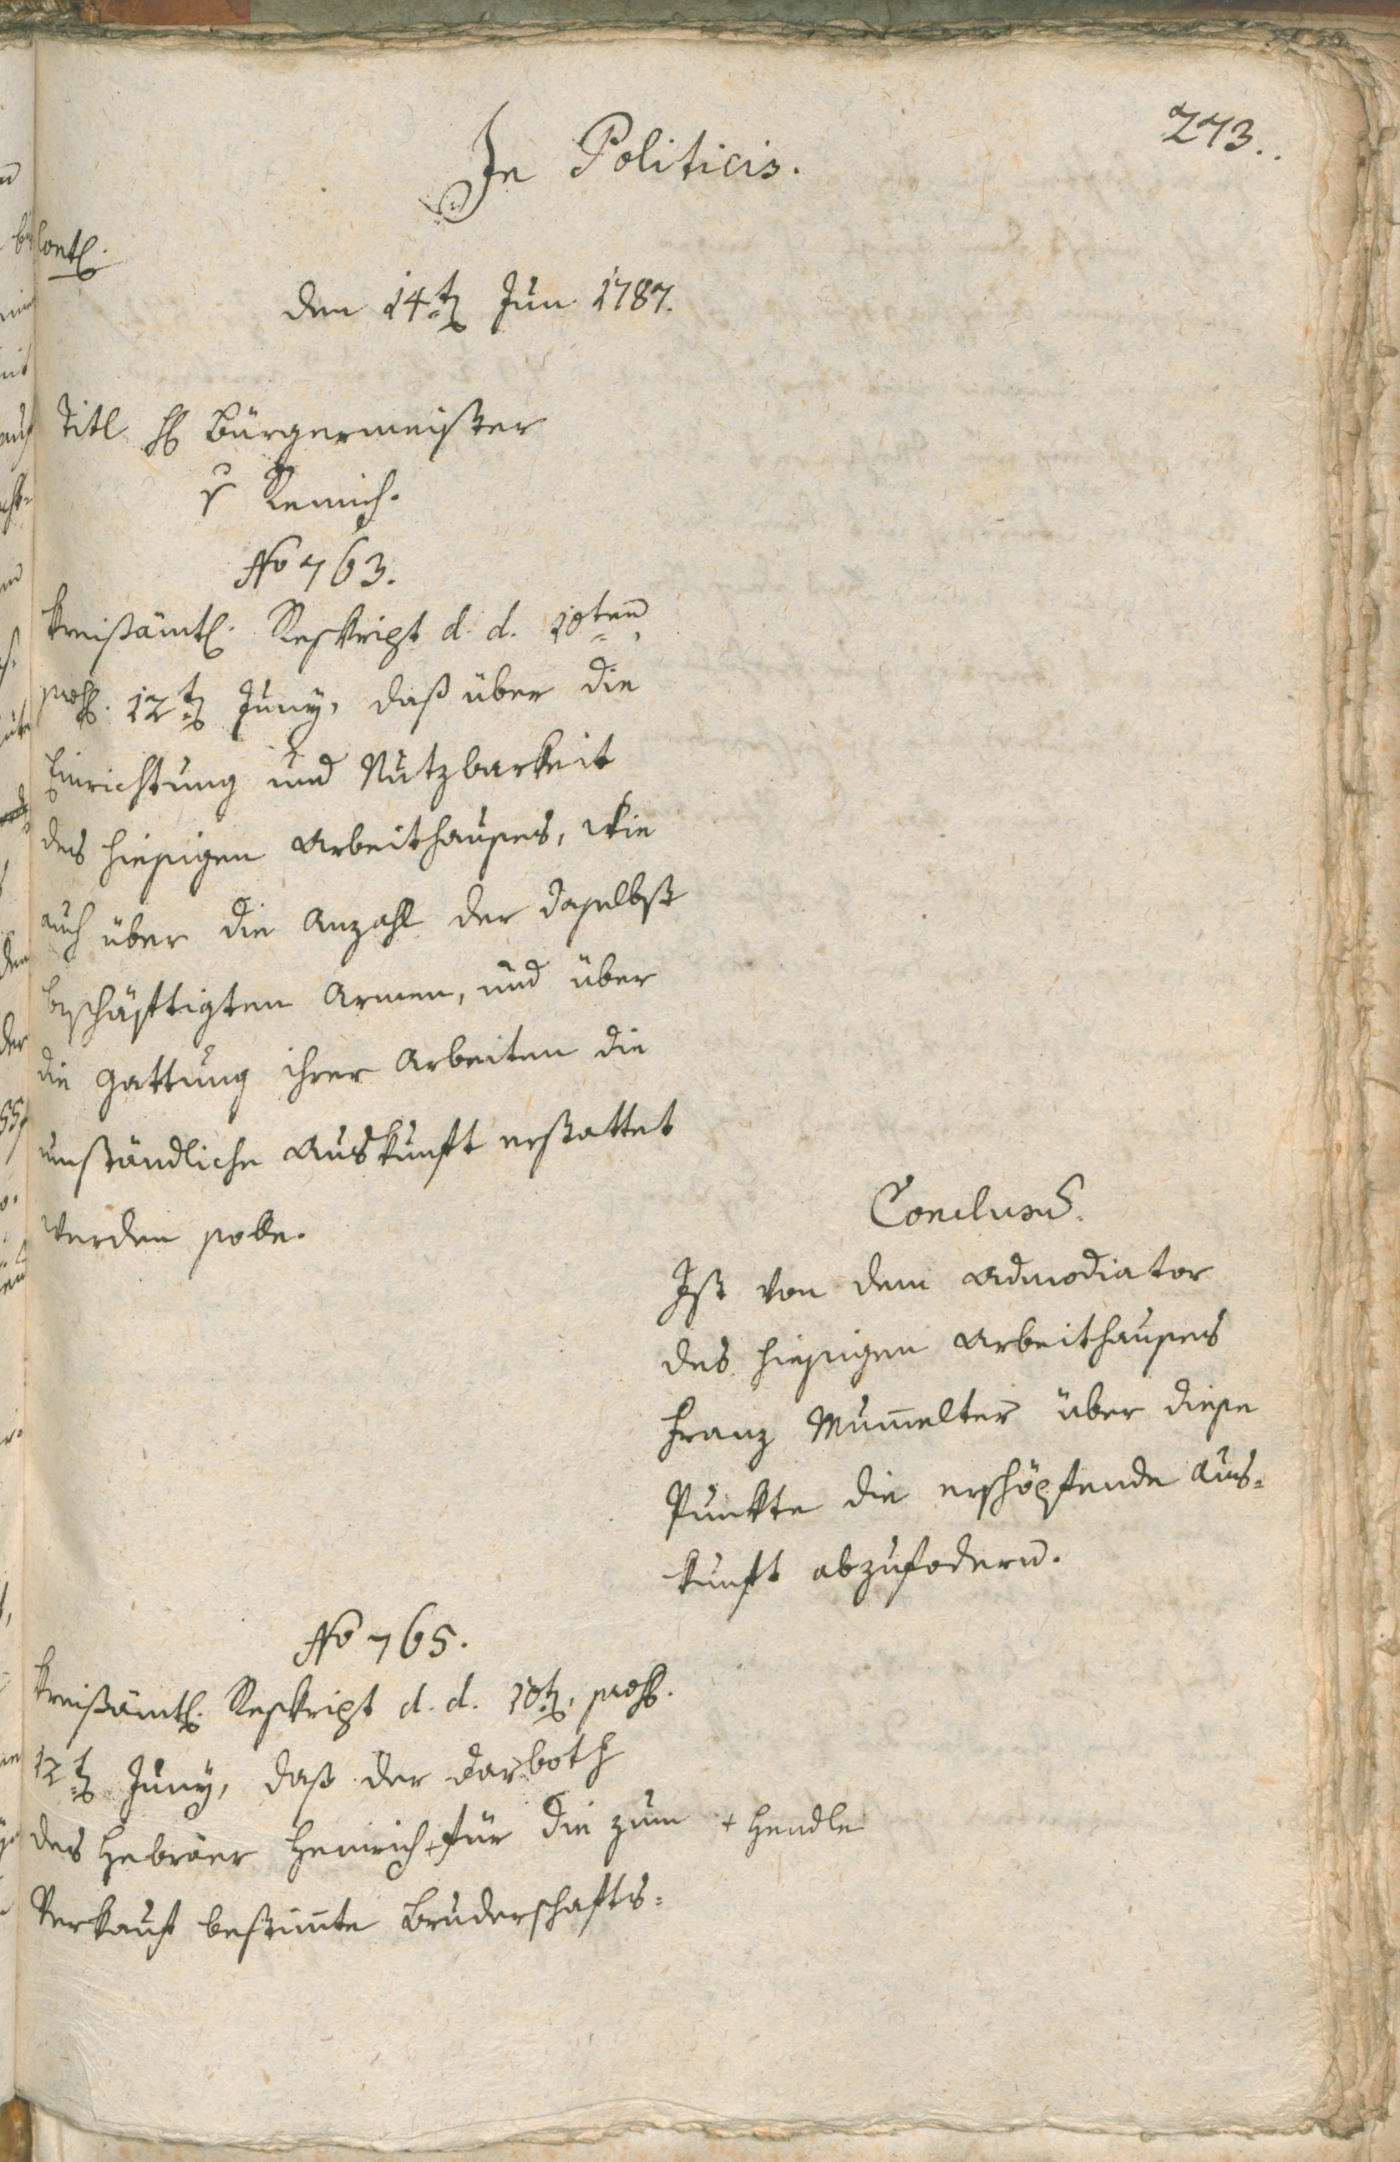 273.
In Politicis.
den 14ten Jun 1787.
Titl H Bürgermeister
v Remich.
No 763.
Kreißämtl. Reskript d. d. 10ten
praes. 12ten Juny, daß über die
Einrichtung und Nutzbarkeit
des hiesigen Arbeithauses, wie
auch über die Anzahl der daselbst
beschäftigten Armen, und über
die Gattung ihrer Arbeiten die
umständliche Auskunft erstattet
werden solle.
Conclusum.
Ist von dem Admodiator
des hiesigen Arbeithauses
Franz Mum̄elter über diese
Punkte die erschöpfende Aus-
kunft abzufodern.
No 765.
Kreißämtl. Reskript d. d. 10ten, praes.
12ten Juny, daß der Darboth
des Hebräer Henrich + für die zum + Hendle
Verkauf bestim̄te Bruderschafts-